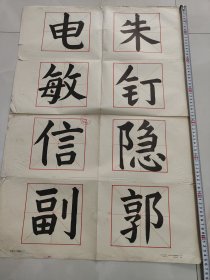 电 朱
敏 钉
信 隐
副 郭